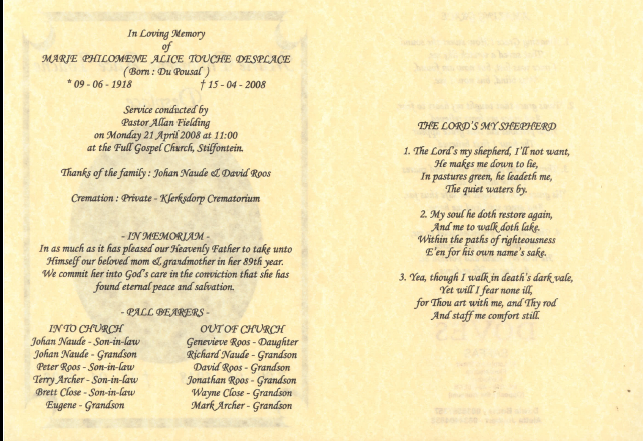 In Loving Memory
of
MARIE PHILOMENE ALICE TOUCHE DESPLACE
( Born : Du Pousal )
* 09 - 06 - 1918 † 15 - 04 - 2008
Service conducted by
Pastor Allan Fielding
on Monday 21 April 2008 at 11:00
at the Full Gospel Church, Stilfontein.
Thanks of the family : Johan Naude & David Roos
Cremation : Private - Klerksdorp Crematorium
- IN MEMORIAM -
In as much as it has pleased our Heavenly Father to take unto
Himself our beloved mom & grandmother in her 89th year.
We commit her into God's care in the conviction that she has
found eternal peace and salvation.
- PALL BEARERS -
IN TO CHURCH
Johan Naude - Son-in-law
Johan Naude - Grandson
Peter Roos - Son-in-law
Terry Archer - Son-in-law
Brett Close - Son-in-law
Eugene - Grandson
OUT OF CHURCH
Genevieve Roos - Daughter
Richard Naude - Grandson
David Roos - Grandson
Jonathan Roos - Grandson
Wayne Close - Grandson
Mark Archer - Grandson
THE LORD'S MY SHEPHERD
1. The Lord's my shepherd, I'll not want,
He makes me down to lie,
In pastures green, he leadeth me,
The quiet waters by.
2. My soul he doth restore again,
And me to walk doth lake.
Within the paths of righteousness
E'en for his own name's sake.
3. Yea, though I walk in death's dark vale,
Yet will I fear none ill,
for Thou art with me, and Thy rod
And staff me comfort still.